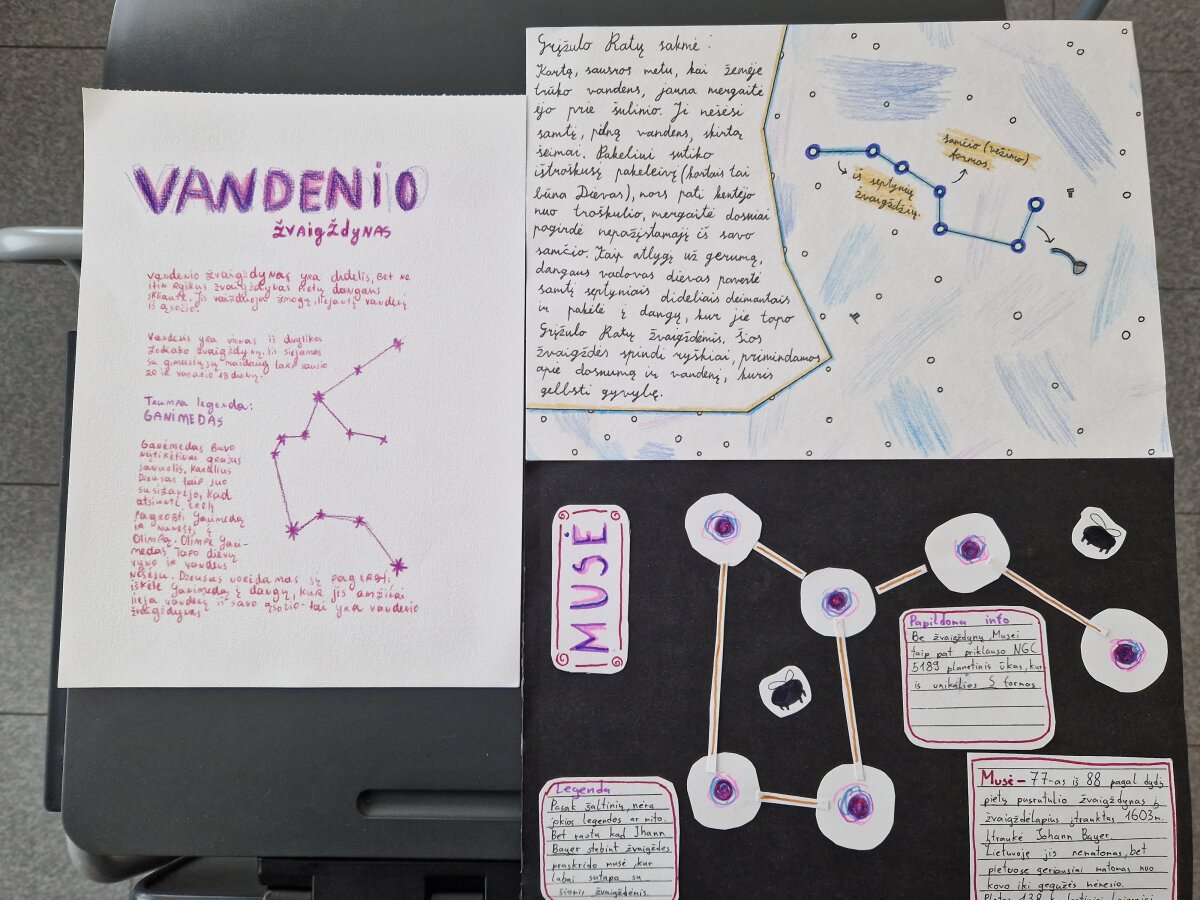 VANDENIO
ŽVAIGŽDYNAS
Vandenio žvaigždynas yra didelis, bet ne
itin ryškus žvaigždynas pietų dangaus
skliaute. Jis vaizduoja žmogų, liejantį vandenį
iš ąsočio.
Vandenis yra vienas iš dvylikos
Zodiako žvaigždynų. Jis siejamas
su gimusiųjų maždaug tarp sausio
20 ir vasario 18 dienų.
Trumpa legenda:
GANIMEDAS
Ganimedas buvo
neįtikėtinai gražus
jaunuolis, karalius
Dzeusas taip juo
susižavėjo, kad
atsiuntė erelį
pagrobti Ganimedą
ir nunešti į
Olimpą. Olimpe Gani-
medas tapo dievų
vyno ir vandens
nešėju. Dzeusas norėdamas jį pagerbti
iškėlė Ganimedą į dangų, kur jis amžinai
lieja vandenį iš savo ąsočio - tai yra vandenio
žvaigždynas
Grįžulo Ratų sakmė:
Kartą, sausros metu, kai žemėje
trūko vandens, jauna mergaitė
ėjo prie šulinio. Ji nešėsi
samtį, pilną vandens, skirtą
šeimai. Pakeliui sutiko
ištroškusį pakeleivį (kartais tai
būna Dievas), nors pati kentėjo
nuo troškulio, mergaitė dosniai
pagirdė nepažįstamąjį iš savo
samčio. Kaip atlygį už gerumą,
dangaus vadovas dievas pavertė
samtį septyniais dideliais deimantais
ir pakėlė į dangų, kur jie tapo
Grįžulo Ratų žvaigždėmis. Šios
žvaigždės spindi ryškiai, primindamos
apie dosnumą ir vandenį, kuris
gelbsti gyvybę.
samčio (vėžimo)
formos.
iš septynių
žvaigždžių.
MUSĖ
Papildoma info
Be žvaigždynų, Musei
taip pat priklauso NGC
5189 planetinis ūkas, kur-
is unikalios S formos
Legenda
Pasak šaltinių, nėra
jokios legendos ar mito.
Bet rasta kad Jhann
Bayer stebint žvaigždes
praskrido musė, kur
labai sutapo su
šiomis žvaigždėmis.
Musė - 77-as iš 88 pagal dydį
pietų pusrutulio žvaigždynas į
žvaigždėlapius įtrauktas 1603m.
Įtraukė Johann Bayer.
Lietuvoje jis nematomas, bet
pietuose geriausiai matomas nuo
kovo iki gegužės mėnesio.